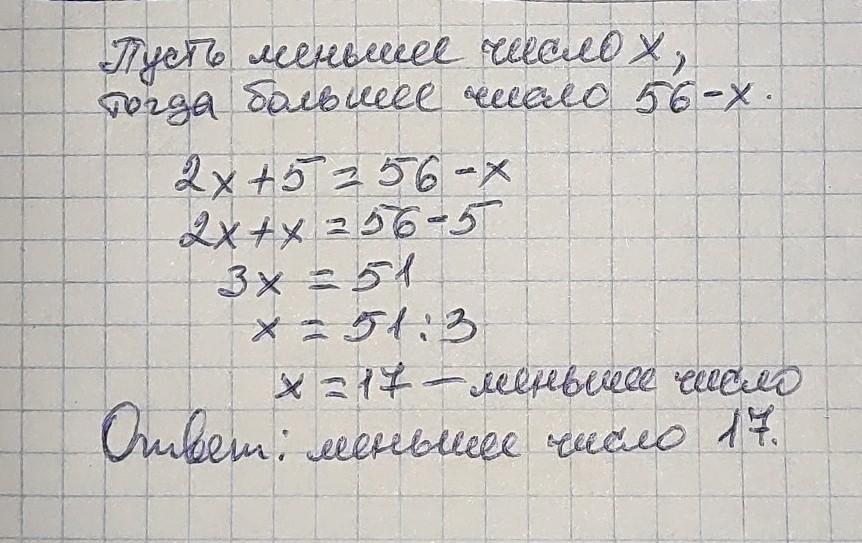 Пусть меньшее число x,
тогда большее число 56-x.
2x+5=56-x
2x+x=56-5
3x=51
x=51:3
x=17 — меньшее число
Ответ: меньшее число 17.